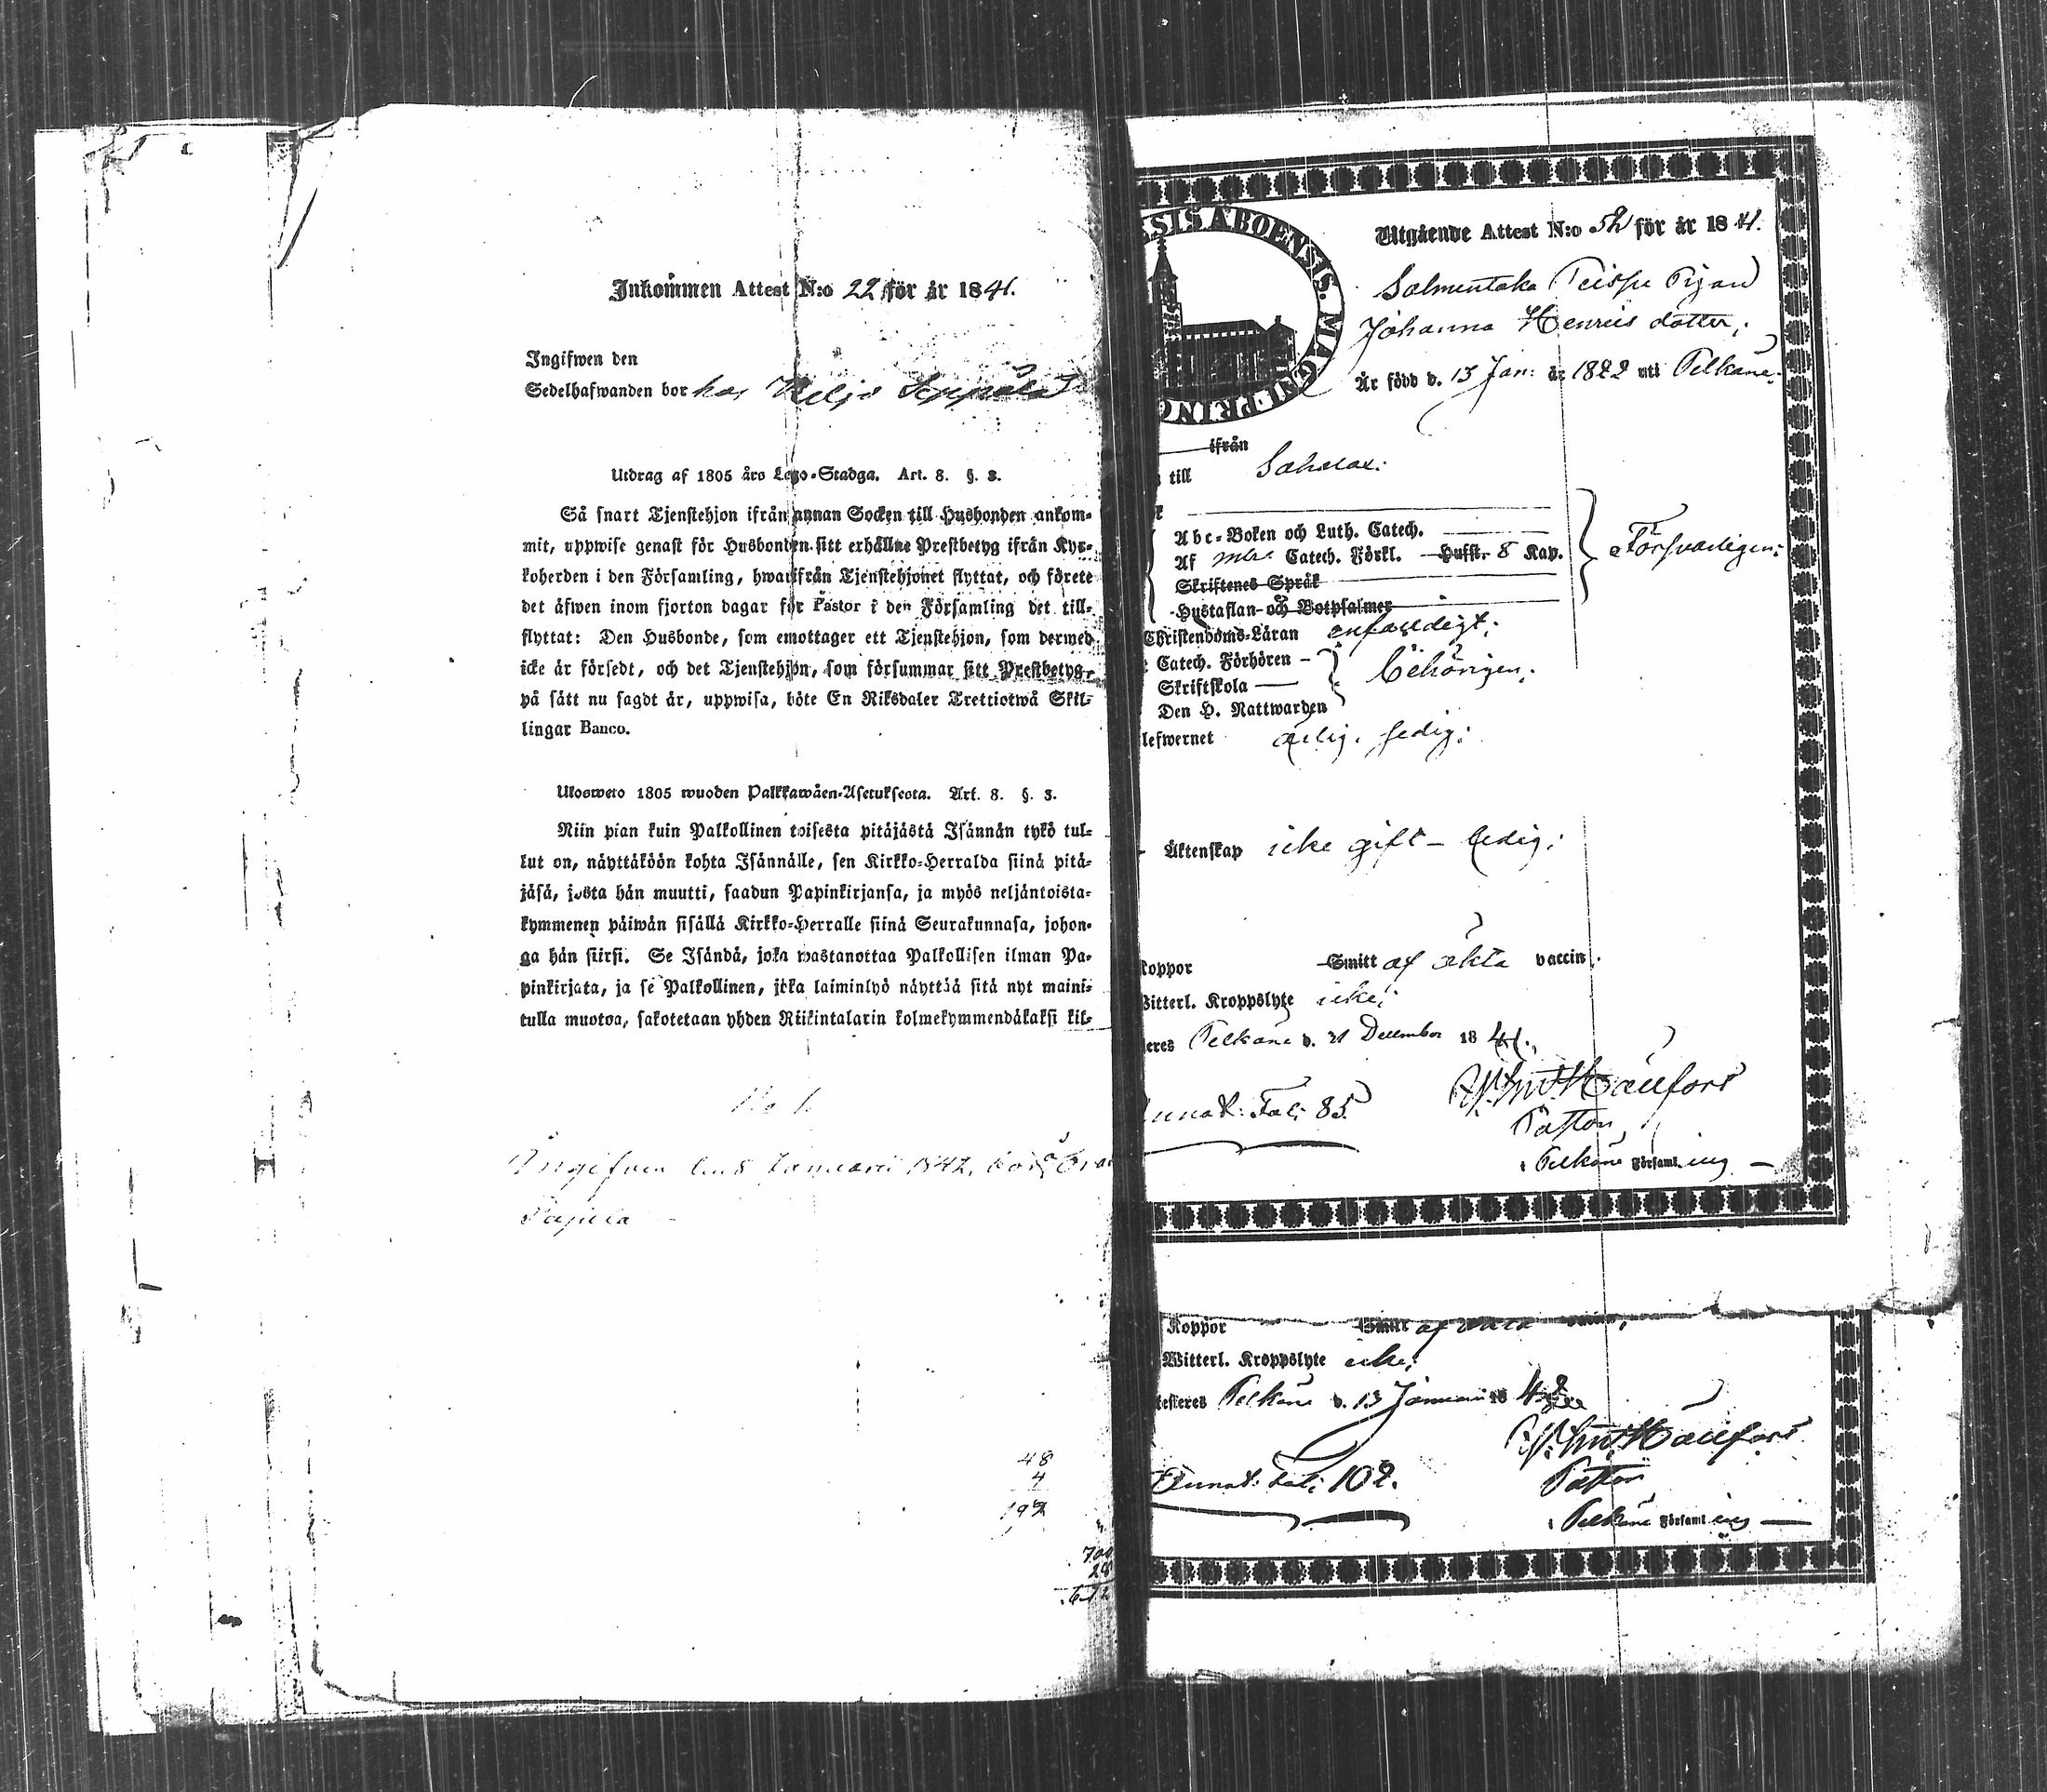 Inkommen Attest N:o 22 för år 1841.
Ingifwen den
Sedelhafwanden bor hos Keljo Seppälä
Utdrag af 1805 års Lego-Stadga. Art. 8. §. 3.
Så snart Tjenstehjon ifrån annan Socken till Husbonden ankom-
mit, uppwise genast för Husbonden sitt erhållne Prestbetyg ifrån Kyr-
koherden i den Församling, hwarifrån Tjenstehjonet flyttat, och förete
det äfwen inom fjorton dagar för Pastor i den Församling det till-
flyttat: Den Husbonde, som emottager ett Tjenstehjon, som dermed
icke är försedt, och det Tjenstehjon, som försummar sitt Prestbetyg,
på sätt nu sagdt är, uppwisa, böte En Riksdaler Trettiotwå Skil-
lingar Banco.
Ulosweto 1805 wuoden Palkkawäen-Asetuksesta. Art. 8. §. 3.
Niin pian kuin Palkollinen toisesta pitäjästä Isännän tykö tul-
lut on, näyttäköön kohta Isännälle, sen Kirkko-Herralda siinä pitä-
jäsä, josta hän muutti, saadun Papinkirjansa, ja myös neljäntoista-
kymmenen päiwän sisällä Kirkko-Herralle siinä Seurakunnasa, johon-
ga hän siirsi. Se Isändä, joka wastanottaa Palkollisen ilman Pa-
pinkirjata, ja se Palkollinen, joka laiminlyö näyttää sitä nyt maini-
tulla muotoa, sakotetaan yhden Riikintalarin kolmekymmendäkaksi kil-
Ingifven den 8 Januarii 1842,
48
4
192
700
28
672
SIS ABOENSIS. MAGNI PRINC
Utgående Attest N:o 52 för år 1841.
Salmentaka Teispe Pigan
Johanna Henricsdotter;
Är född d. 13 Jan: år 1822 uti Pelkäne;
ifrån
till Sahalax:
Abc-Boken och Luth. Catech.
Af Catech. Förkl. Hufst. 8 Kap. Försvarligen:
Skriftenes Språk
Hustaflan och Botpsalmer
Christendoms-Läran enfaldigt;
Catech. Förhören
Skriftskola behörigen;
Den H. Nattwarden
lefwernet ärlig, sedig;
Äktenskap icke gift – ledig;
Koppor Smitt af äkta vaccin.
Witterl. Kroppslyte icke;
teres Pelkäne d. 21 December 1841.
Fol: 85.
Pastor
i Pelkäne Församling
Koppor Smitt af
Witterl. Kroppslyte icke;
testeres Pelkäne d. 13 Januarii 1842
102.
Pastor
i Pelkäne Församling